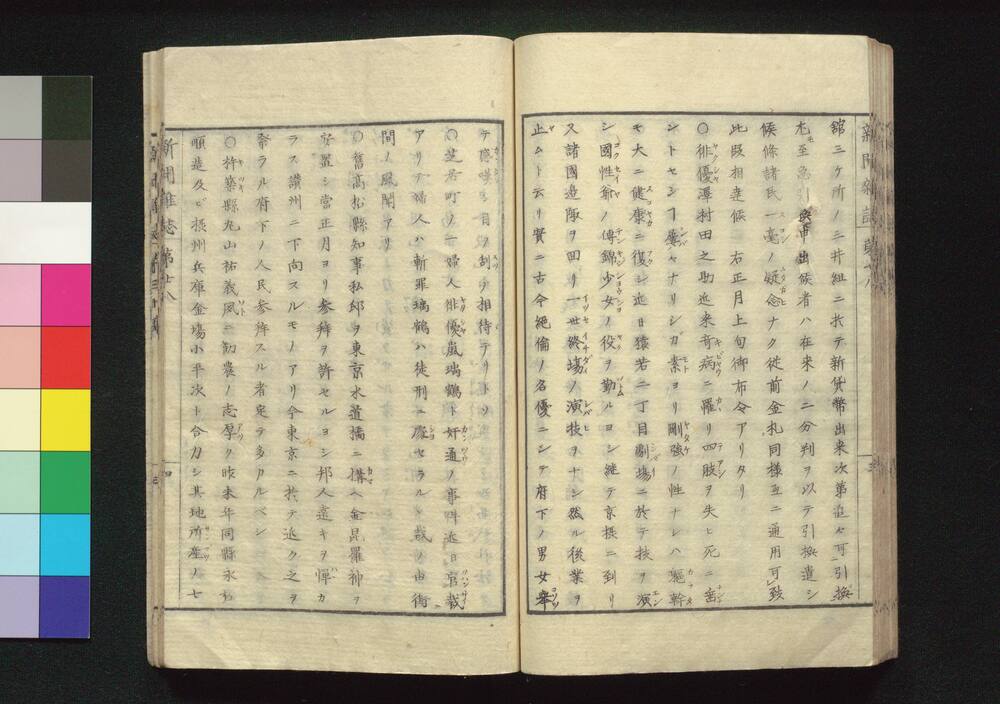 舘三ケ所ノ三井組ニ於テ新貨幣出来次第追々可引換
尤至急引換申出候者ハ在来ノ二分判ヲ以テ引換遣シ
候條諸民一毫ノ疑念ナク従前金札同様互ニ通用可致
此段相達候 右正月上旬御布令アリタリ
〇俳優澤村田之助近来奇病ニ罹リ四肢ヲ失ヒ死ニ垂
ントセシヿ屢ャナリシガ素ヨリ剛強ノ性ナレハ軀幹
モ大ニ健康ニ復シ近日猿若二丁目劇場ニ於テ技ヲ演
シ國性爺ノ傳錦少女ノ役ヲ勤ルヨシ継テ京摂ニ到リ
又諸國造隊ヲ回リ一世終場ノ演技ヲナシ然ル後業ヲ
止ムト云リ實ニ古今絶倫ノ名優ニシテ府下ノ男女挙
テ感嘆シ目ヲ刮テ相待テリトソ
〇芝居町ノ一婦人俳優嵐璃鶴ト奸通ノ事件近日官裁
アリテ婦人ハ斬罪璃鶴ハ徒刑ニ處セラルト哉ノ由街
間ノ風聞アリ
〇舊高松縣知事私邸ヲ東京水道橋ニ構ヘ金昆羅神ヲ
安置シ當正月ヨリ参拜ヲ許セルヨシ邦人遠キヲ憚カ
ラス讃州ニ下向スルモノアリ今東京ニ於テ近ク之ヲ
祭ラル府下ノ人民参拜スル者定テ多カルベシ
〇杵築縣丸山祐義夙ニ勧農ノ志厚ク昨未年同縣永松
順造及ビ摂州兵庫金場小平次ト合力シ其地所産ノ七
新聞雑誌 第廿八
四